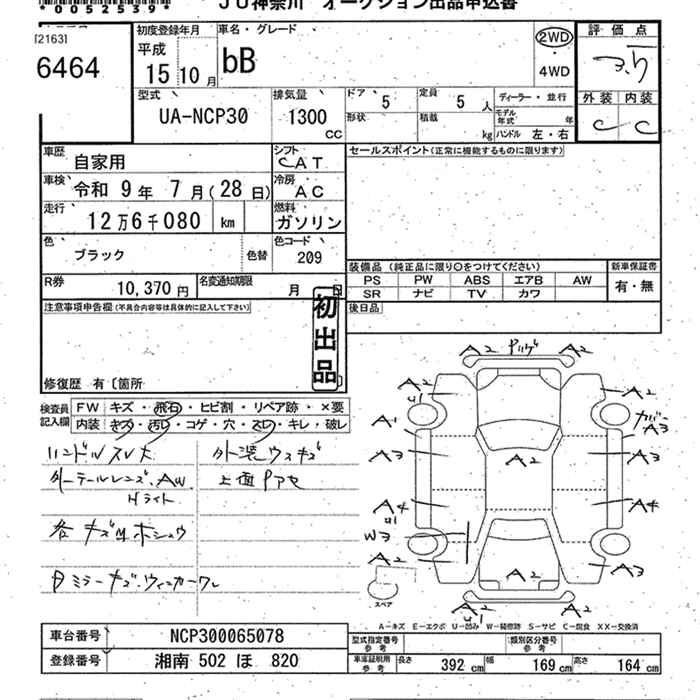 *0052539*
JU神奈川 オークション出品申込書
[2163]
6464
初度登録年月
平成
15 10 月
車名・グレード
bB
2WD
・
4WD
評価点
3.5
外装 内装
C C
型式
UA-NCP30
排気量
1300
CC
ドア 5
定員 5 人
ディーラー・並行
形状
積載 kg
モデル年式 年
ハンドル 左・右
車歴 自家用
シフト CAT
セールスポイント(正常に機能するものに限ります)
車検 令和 9 年 7 月(28 日)
冷房 AC
走行 12 万 6 千 080 km
燃料 ガソリン
色 ブラック 色替
色コード 209
R券 10,370 円
名変通知期限 月 日
装備品 (純正品に限り○をつけてください)
新車保証書
PS PW ABS エアB AW
SR ナビ TV カワ
有・無
注意事項申告欄(不具合内容等は具体的に記入して下さい)
初出品
後日品
修復歴 有〔箇所
検査員記入欄
FW キズ・飛石・ヒビ割・リペア跡・×要
内装 キズ・汚レ・コゲ・穴・スレ・キレ・破レ
ハンドルスレ大
外装ウスキズ
外ーテールレンズ、AW
Hライト
上面Pアセ
各キズ凹ホシュウ
ミラーキズ・ウィンカーワレ
A2 A2
A2
U1
A2
A1
カバー
A3
A3 A2 A3
A4
U1
A4
W3
A2 A2 A3
A2
U1
A2
スペア
A―キズ E―エクボ U―凹み W―補修跡 S―サビ C―腐食 XX―交換済
車台番号 NCP300065078
登録番号 湘南 502 ほ 820
型式指定番号 類別区分番号
車庫証明用参考 長さ 392 cm 幅 169 cm 高さ 164 cm
参考